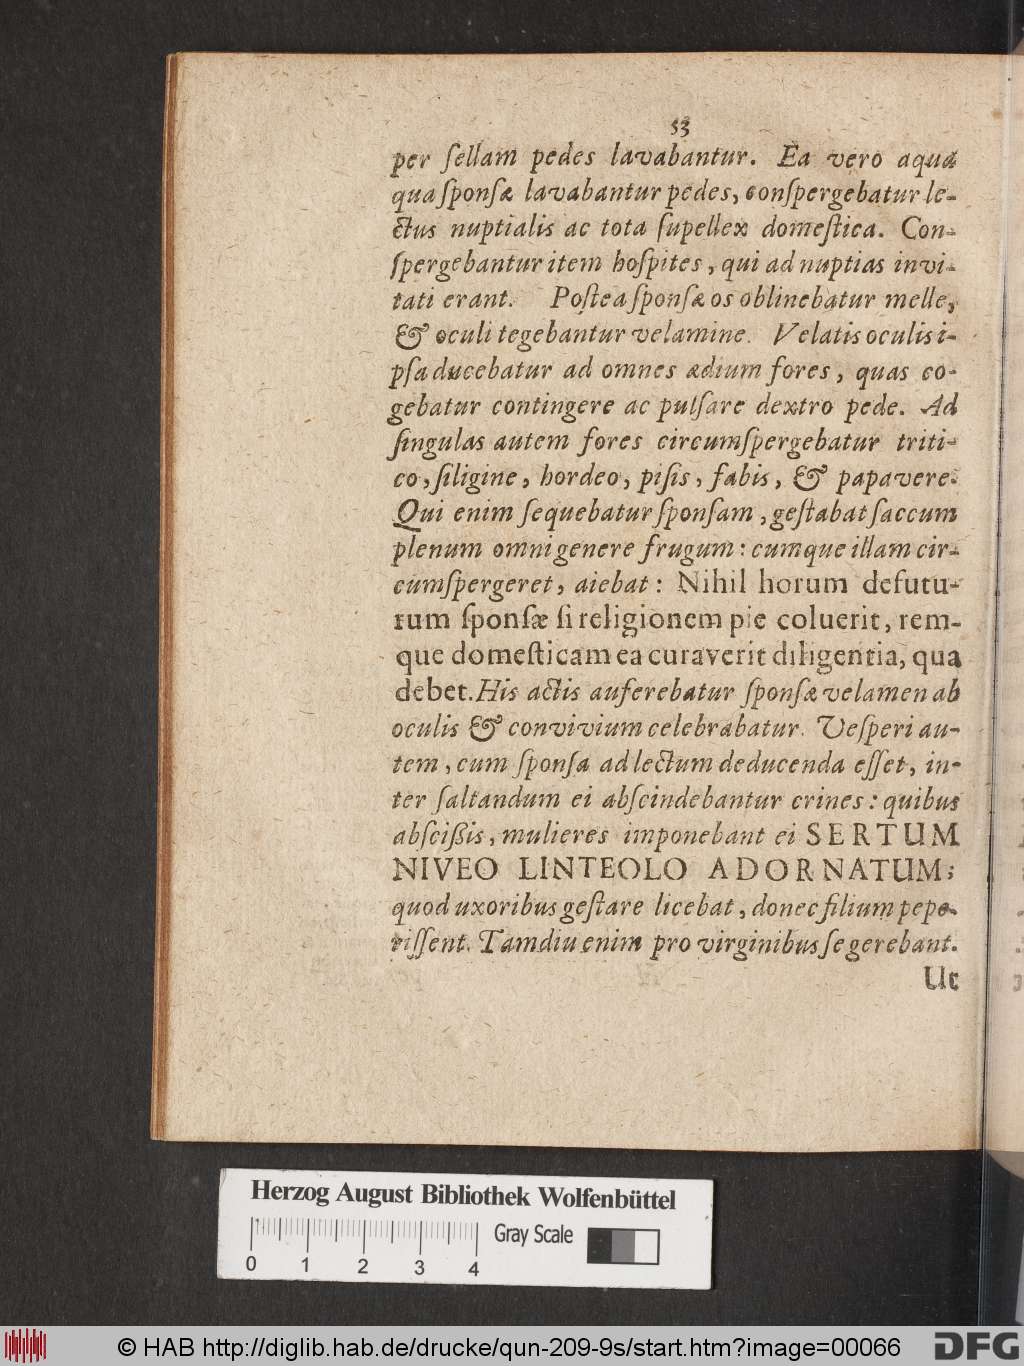 53
per ſellam pedes lavabantur. Ea vero aqua
qua ſponſæ lavabantur pedes, conſpergebatur le-
ctus nuptialis ac tota ſupellex domeſtica. Con-
ſpergebantur item hoſpites, qui ad nuptias invi-
tati erant. Poſtea ſponſæ os oblinebatur melle,
& oculi tegebantur velamine. Velatis oculis i-
pſa ducebatur ad omnes ædium fores, quas co-
gebatur contingere ac pulſare dextro pede. Ad
ſingulas autem fores circumſpergebatur triti-
co, ſiligine, hordeo, piſis, fabis, & papavere.
Qui enim ſequebatur ſponſam, geſtabat ſaccum
plenum omni genere frugum: cumque illam cir-
cumſpergeret, aiebat: Nihil horum defutu-
rum ſponſæ ſi religionem pie coluerit, rem-
que domeſticam ea curaverit diligentia, qua
debet. His actis auferebatur ſponſæ velamen ab
oculis & convivium celebrabatur. Veſperi au-
tem, cum ſponſa ad lectum deducenda eſſet, in-
ter ſaltandum ei abſcindebantur crines: quibus
abſcißis, mulieres imponebant ei SERTUM
NIVEO LINTEOLO ADORNATUM;
quod uxoribus geſtare licebat, donec filium pepe-
riſſent. Tamdiu enim pro virginibus ſe gerebant.
Ut
Herzog August Bibliothek Wolfenbüttel
Gray Scale
0 1 2 3 4
© HAB http://diglib.hab.de/drucke/qun-209-9s/start.htm?image=00066
DFG